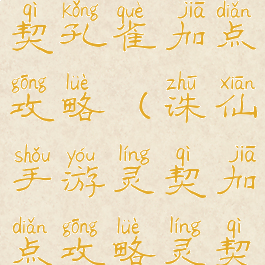 qì kǒng què jiā diǎn
契孔雀加点
gōng lüè zhū xiān
攻略（诛仙
shǒu yóu líng qì jiā
手游灵契加
diǎn gōng lüè líng qì
点攻略灵契